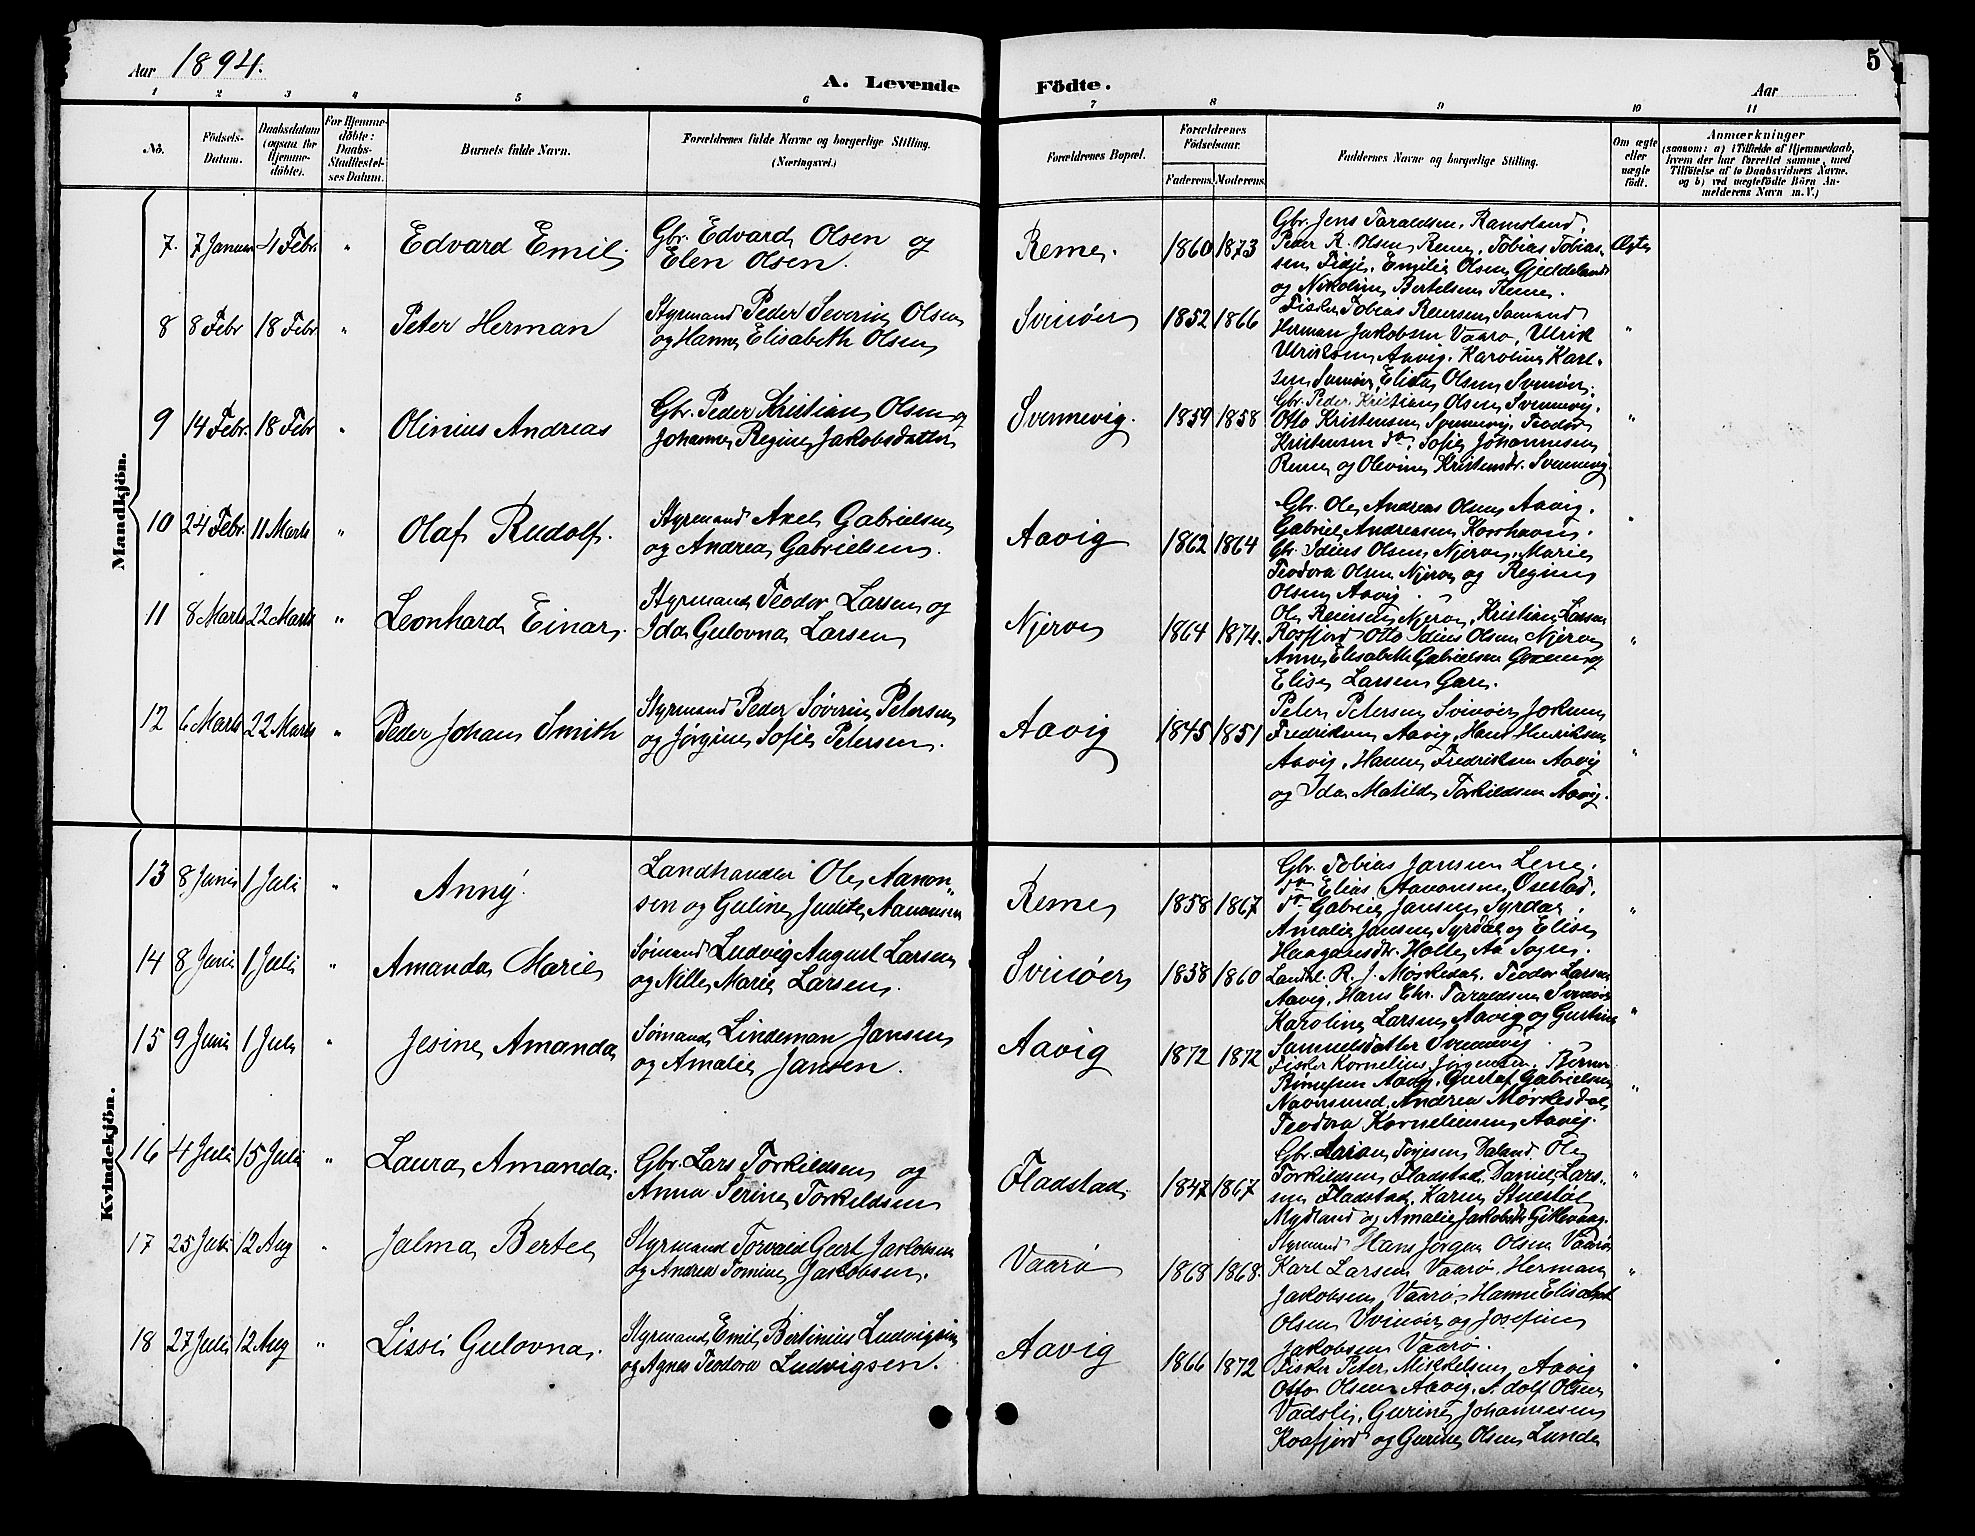 Aar 1894.
A. Levende Födte.
5
Aar
1 2 3 4 5 6 7 8 9 10 11
No.
Födsels-Datum.
Daabsdatum (ogsaa for Hjemmedöbte).
For Hjemmedöbte: Daabs-Stadfæstelses Datum.
Barnets fulde Navn.
Forældrenes fulde Navne og borgerlige Stilling. (Næringsvei.)
Forældrenes Bopæl.
Forældrenes Födselsaar.
Faderens. Moderens.
Faddernes Navne og borgerlige Stilling.
Om ægte eller uægte født.
Anmærkninger
(saasom: a) i Tilfælde af Hjemmedaab, hvem der har forrettet samme, med Tilföielse af to Daabsvidners Navne. og b) ved uægtefödte Börn Anmelderens Navn m. V.)
Mandkjön.
7. 7 Januar 4 Febr. " Edvard Emil. Gbr. Edvard Olsen og
Elen Olsen. Reme. 1860 1873
Gbr. Jens Taraldsen, Ramsland,
Peder R. Olsen Reme, Tobias Tobias- Ægte
sen Fidje, Emilie Olsen Gjeddeland
og Nikoline Bertelsen Reme.
8 8 Febr 18 Febr " Peter Herman Styrmand Peder Severin Olsen
og Hanne Elisabeth Olsen Svinöer 1852 1866
Fisker Tobias Reiersen
Herman Jakobsen Vaarø, Ulrik "
Ulriksen Aavig, Karoline Karl-
sen Svinør, Elida Olsen Svinør.
9 14 Febr. 18 Febr " Olinius Andreas Gbr. Peder Kristian Olsen og
Johanne Regine Jakobsdatter Svennevig. 1859 1858
Gbr. Peder Kristian Olsen Svennevig,
Otto Kristensen Svennevig, Teodor "
Kristensen do, Sofie Johannesen
Reme og Olevine Kristensdr. Svennevig
10 24 Febr. 11 Marts " Olaf Rudolf. Styrmand Axel Gabrielsen
og Andrea Gabrielsen. Aavig 1862 1864
Gbr. Ole Andreas Olsen Aavig.
Gabriel Andreasen Korshavn. "
Gbr. Idius Olsen Njerve, Marie
Teodora Olsen Njerve og Regine
Olsen Aavig.
11 8 Marts 22 Marts " Leonhard Einar. Styrmand Teodor Larsen og
Ida Gulovna Larsen Njerve 1864 1874.
Ole Reiersen Njerve, Kristian Larsen
Rosfjord Otto Idius Olsen Njerve "
Anne Elisabeth Gabrielsen og
Elise Larsen Gare.
12 6 Marts 22 Marts " Peder Johan Smith Styrmand Peder Søverin Petersen
og Jørgine Sofie Petersen. Aavig 1845 1851
Peter Petersen Svinöer, Jokum
Fredriksen Aavig, Hans Henriksen
Aavig, Hanne Fredriksen Aavig "
og Ida Matilde Torkildsen Aavig.
Kvindekjön.
13 8 Juni 1 Juli " Anny. Landhandler Ole Aanon-
sen og Guline Judite Aanonsen Reme 1858 1867
Gbr. Tobias Jansen Lene.
do Elias Aanonsen Ørestad.
do Gabriel Jansen Syrdal, "
Amalie Jansen Syrdal og Elise
Haagensdr. Holle Aa Sogn.
14 8 Juni 1 Juli " Amanda Marie Sømand Ludvig August Larsen
og Nille Marie Larsen. Svinöer 1858 1860
Landhl. R. J. Møskedal, Teodor Larsen
Aavig, Hans Chr. Taraldsen Svinør "
Karoline Larsen Aavig og Gustine
Samuelsdatter Svennevig
15 9 Juni 1 Juli " Jesine Amanda Sømand Lindeman Jansen
og Amalie Jansen. Aavig 1872 1872
Fisker Kornelius Jørgensen,
Aavig, Gustaf Gabrielsen "
Navesund, Andrea Mørkesdal,
Teodora Korneliusen Aavig.
16 4 Juli 15 Juli " Laura Amanda. Gbr. Lars Torkildsen og
Anna Serine Torkildsen Fladstad 1847 1867
Gbr. Torjesen Daland, Ole
Torkildsen Fladstad, Daniel Lars- "
sen Fladstad, Karen
Mydland og Amalie Jakobsdr.
17 25 Juli 12 Aug " Jalma Bertee Styrmand Torvald Geert Jakobsen
og Andrea Tomine Jakobsen. Vaarø 1868 1868.
Styrmand Hans Jørgen Olsen Vaarø
Karl Larsen Vaarø, Herman "
Jakobsen Vaarø, Hanne Elisabet
Olsen Svinöer og Josefine
Jakobsen Vaarø.
18 27 Juli 12 Aug " Lissi Gulovna. Styrmand Emil Bertinius Ludvigsen
og Agnes Teodora Ludvigsen. Aavig 1866 1872
Fisker Peter Mikkelsen, Aavig "
Otto Olsen Aavig, Adolf Olsen
Vadsli, Gurine Johannesen
Koafjord og Gurine Olsen Lunde